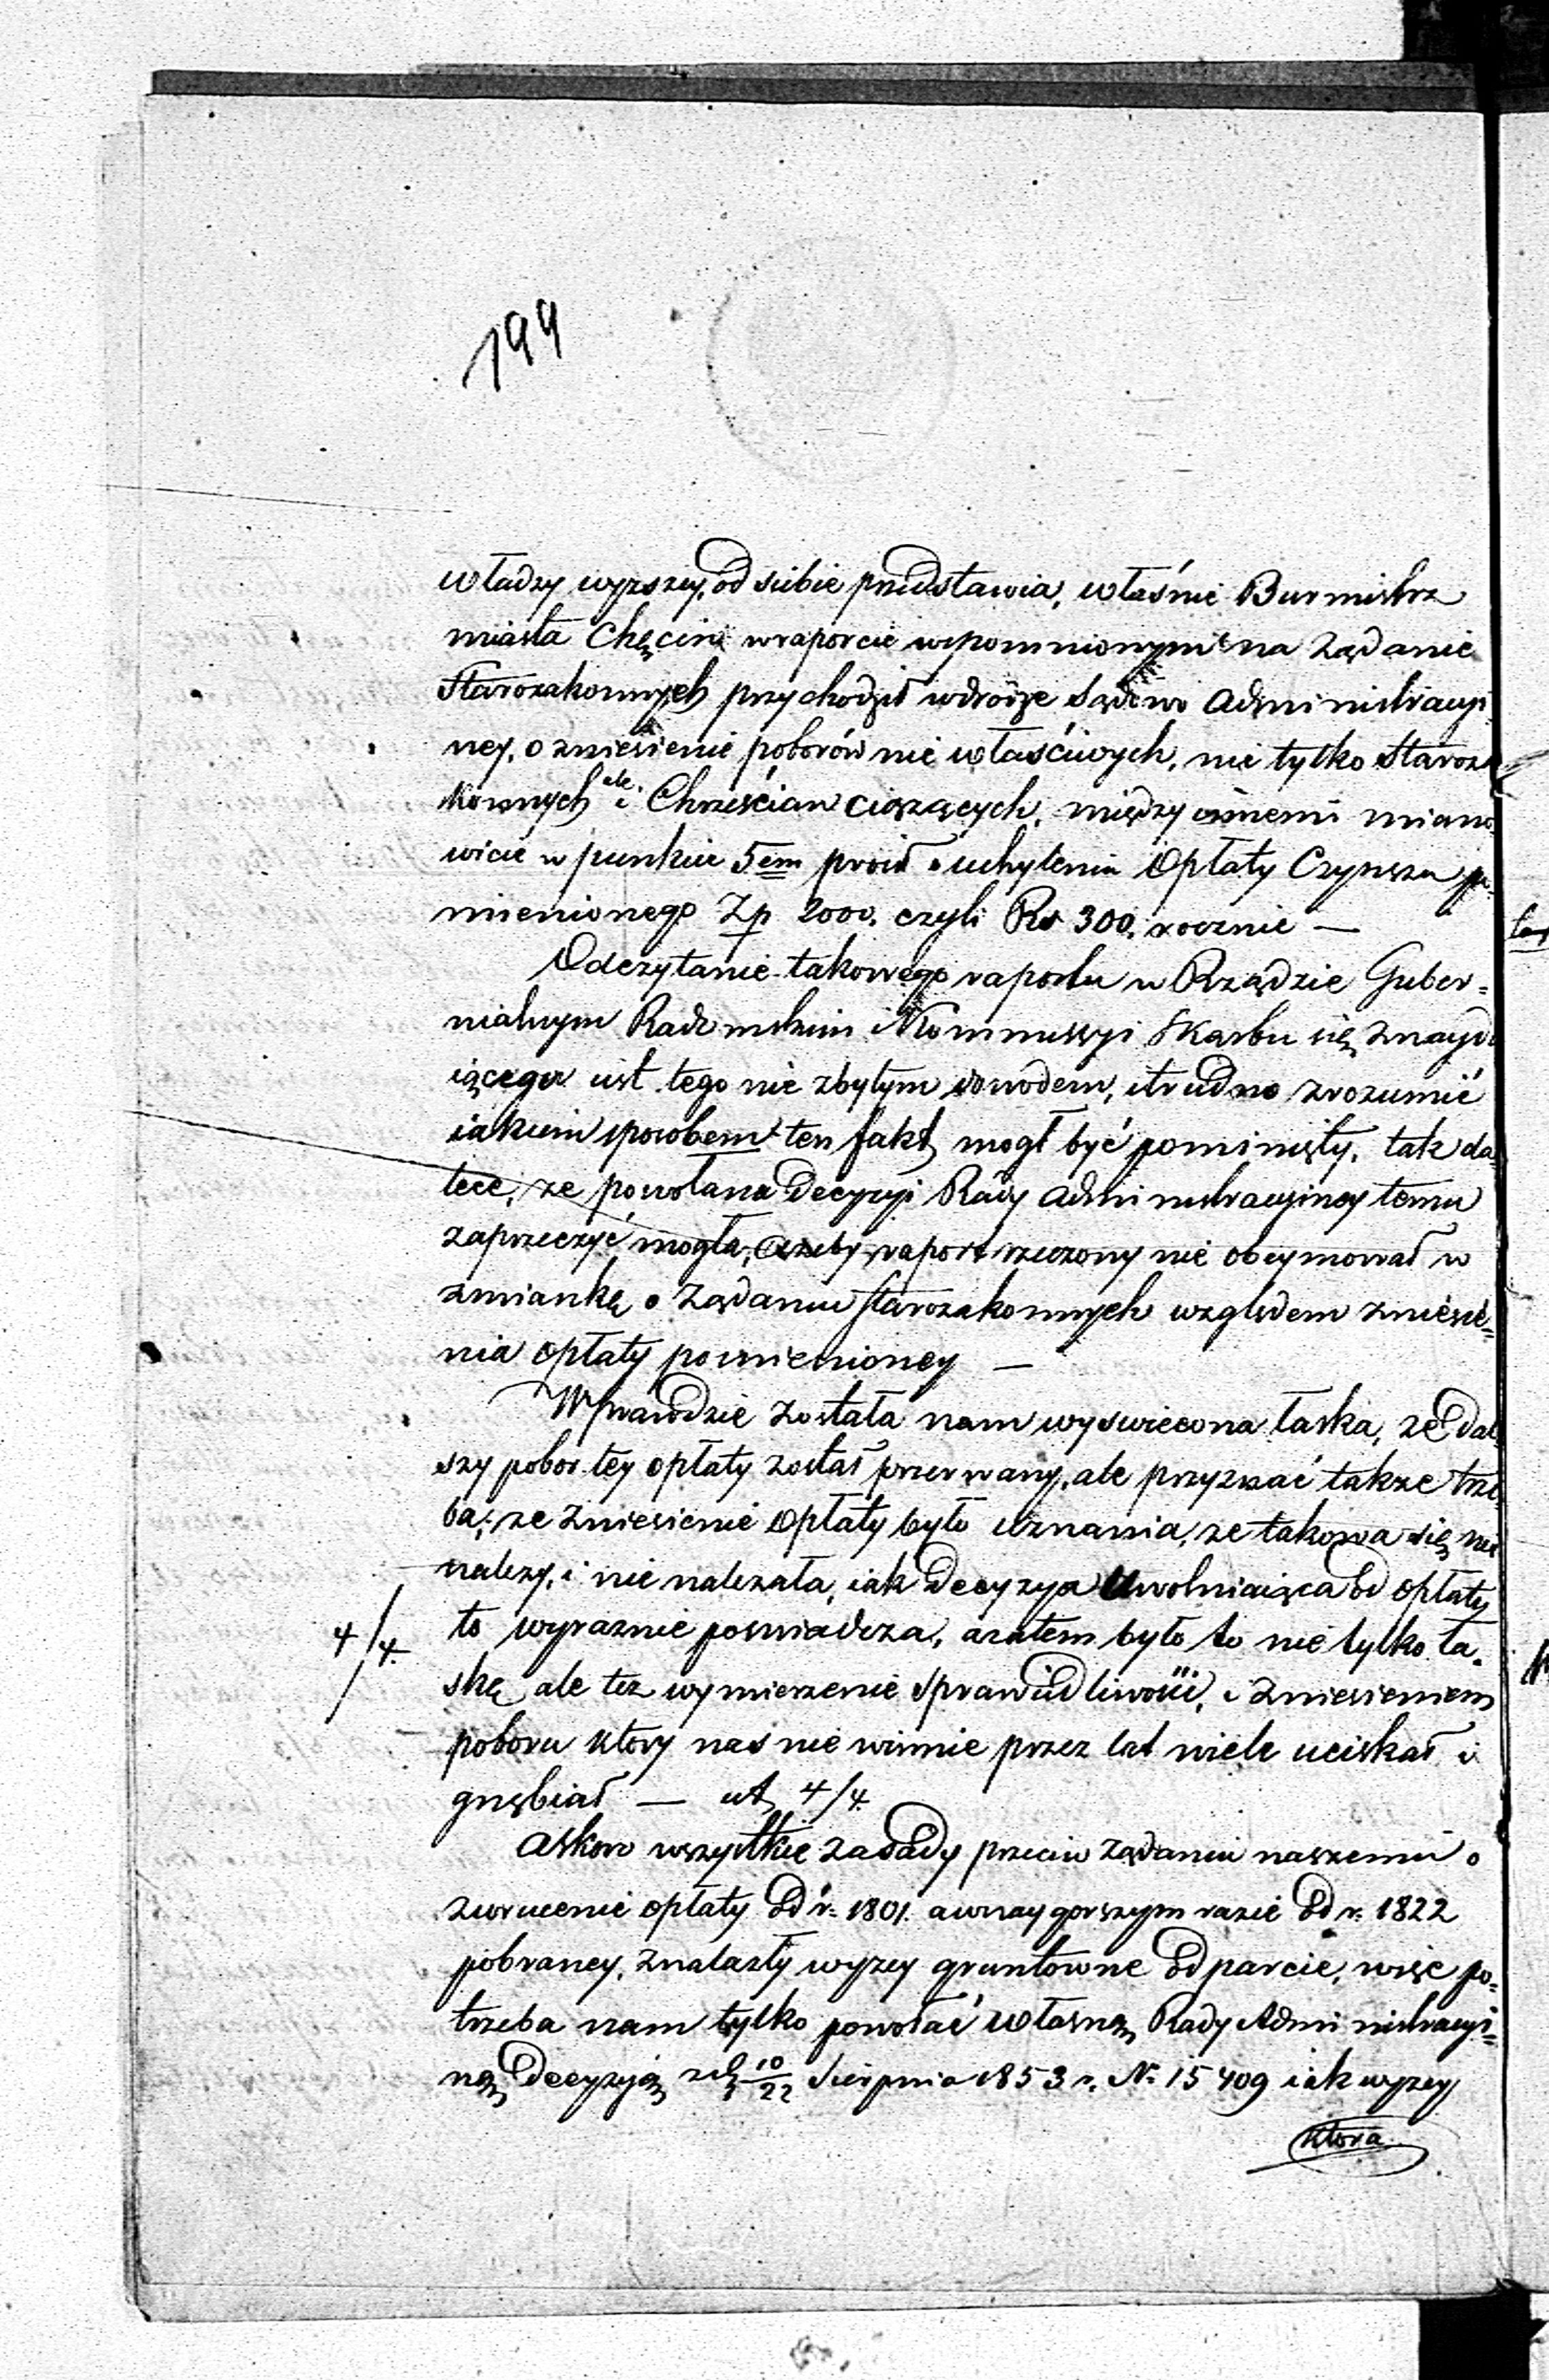 194
władzy wyższey, od siebie przedstawia, właśnie Burmistrz
miasta Chęcin w raporcie wspomnionym na żądanie
Starozakonnych przychodził w drodze Sądowo Administracyi
ney, o zniesienie poborów nie właściwych, nie tylko Staroza
konnych ale i Chrześcian ciążących, między innemi miano
wicie w punkcie 5em prosił o uchylenia Opłaty Czynszu po
mienionego Zp 2000. czyli Rs 300. rocznie —
Odczytanie takowego raportu w Rządzie Guber=
nialnym Radomskim i Kommissyi Skarbu się znaydu
iącego iest tego nie zbytym dowodem, i trudno zrozumić
iakiem sposobem ten fakt mogł być pominięty, tak da
lece, ze powołana Decyzyi Rady Administracyiney temu
zaprzeczyć mogła, raport rzeczony nie obeymował w
zmiankę o żądaniu starozakonnych względem zniesie=
nia opłaty pomienioney —
Wprawdzie została nam wyswiecona łaska, ze dal
szy pobor tey opłaty został przerwany, ale przyznać takze trze
ba, ze zniesienie Opłaty było uznania, ze takowa się nie
nalezy, i nie nalezała, iak Decyzya Uwolniaiąca od opłaty
4/4.
to wyraznie poswiadcza, azatem było to nie tylko ła.
ską ale tez wymierzenie sprawiedliwości, i zniesieniem
poboru ktory nas nie winnie przez lat wiele uciskał i
gnębiał — ut 4/4.
Askoro wszystkie zasady przeciw żądaniu naszemu o
zwrucenie opłaty od r. 1801. a w nay gorszym razie od r. 1822
pobraney, znalazły wyzey gruntowne odparcie, więc po=
trzeba nam tylko powołać własną Rady Administracyi=
ną Decyzyią z d 10/22 Sierpnia 1853 r. No 15409 iak wyzey
ktora